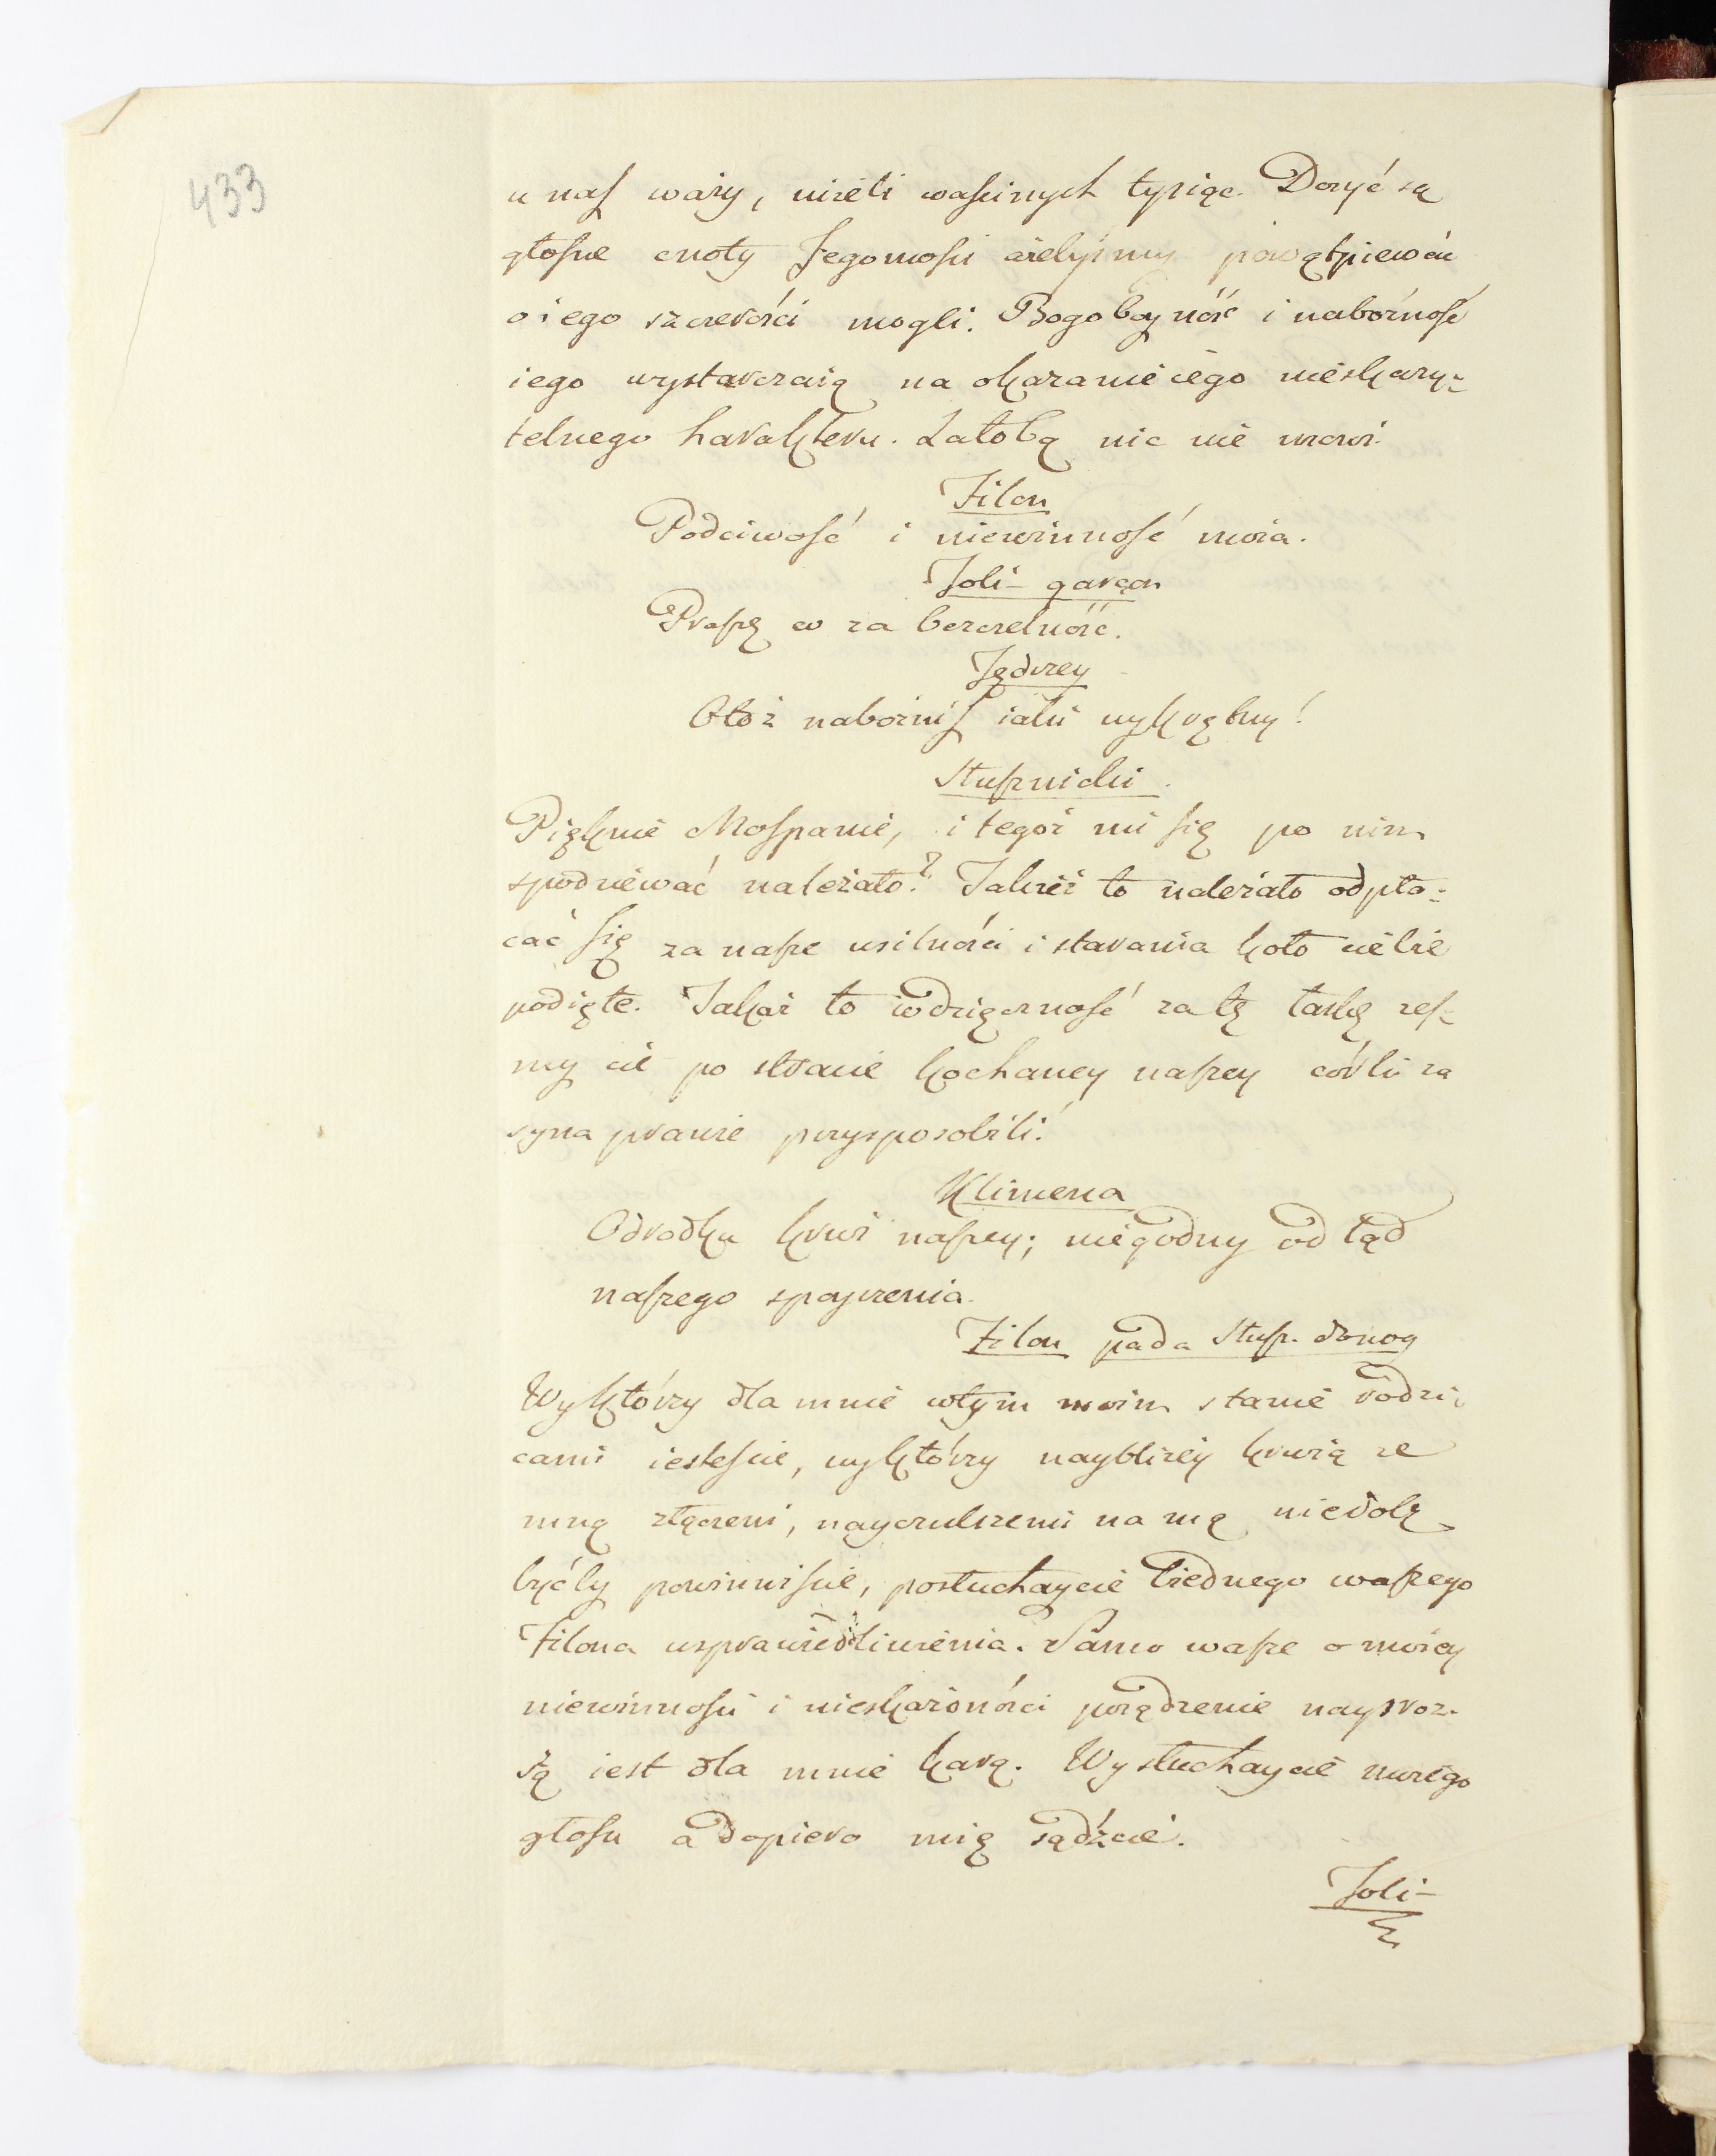 433
u nas waży, niżeli waszinych tysiąc. Dosyć są
głośne cnoty Jegomości ażebyśmy powątpiewać
o iego szczerości mogli. Bogoboyność i nabożność
iego wystarczaią na okazanie iego nieskazy-
telnego harakteru. Zatobą nic nie mowi.
Filon
Podciwość i niewinność moia.
Joli-garçon
Proszę co za bezczelność.
Jędrzey
Otoż nabożniś iaki wykrętny!
Stusznicki.
Pięknie Mospanie, i tegoż mi się po nim
spodziewać należało? Takież to należało odpła-
cać się za nasze usilności i starania koło ciebie
podięte. Jakaż to wdzięczność za tę łaskę żeś-
my cie po stracie kochaney naszey córki za
syna prawie przysposobili!
Klimena
Odrodku krwi naszey; niegodny od tąd
naszego spoyrzenia.
Filon pada Stusz. donog
Wyktórzy dla mnie wtym moim stanie rodzi-
cami iesteście, wyktórzy naybliżey krwią ze
mną złączeni, nayczulszemi na mą niedolę
byćby powinniście, posłuchaycie biednego waszego
Filona usprawiedliwienia. Samo wasze o moiey
niewinności i nieskażoności posądzenie naysroż-
szą iest dla mnie karą. Wysłuchaycie moiego
głosu a dopiero mię sądźcie.
Joli-